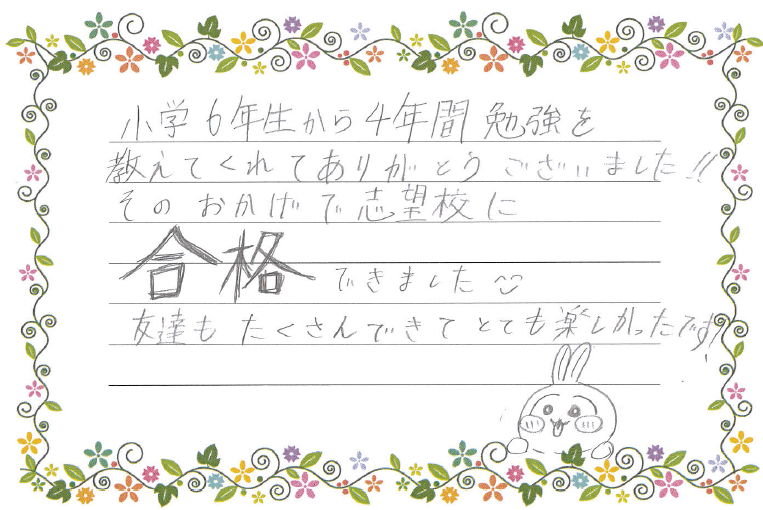 小学6年生から4年間勉強を
教えてくれてありがとうございました!!
そのおかげで志望校に
合格できました
友達もたくさんできてとても楽しかったです!